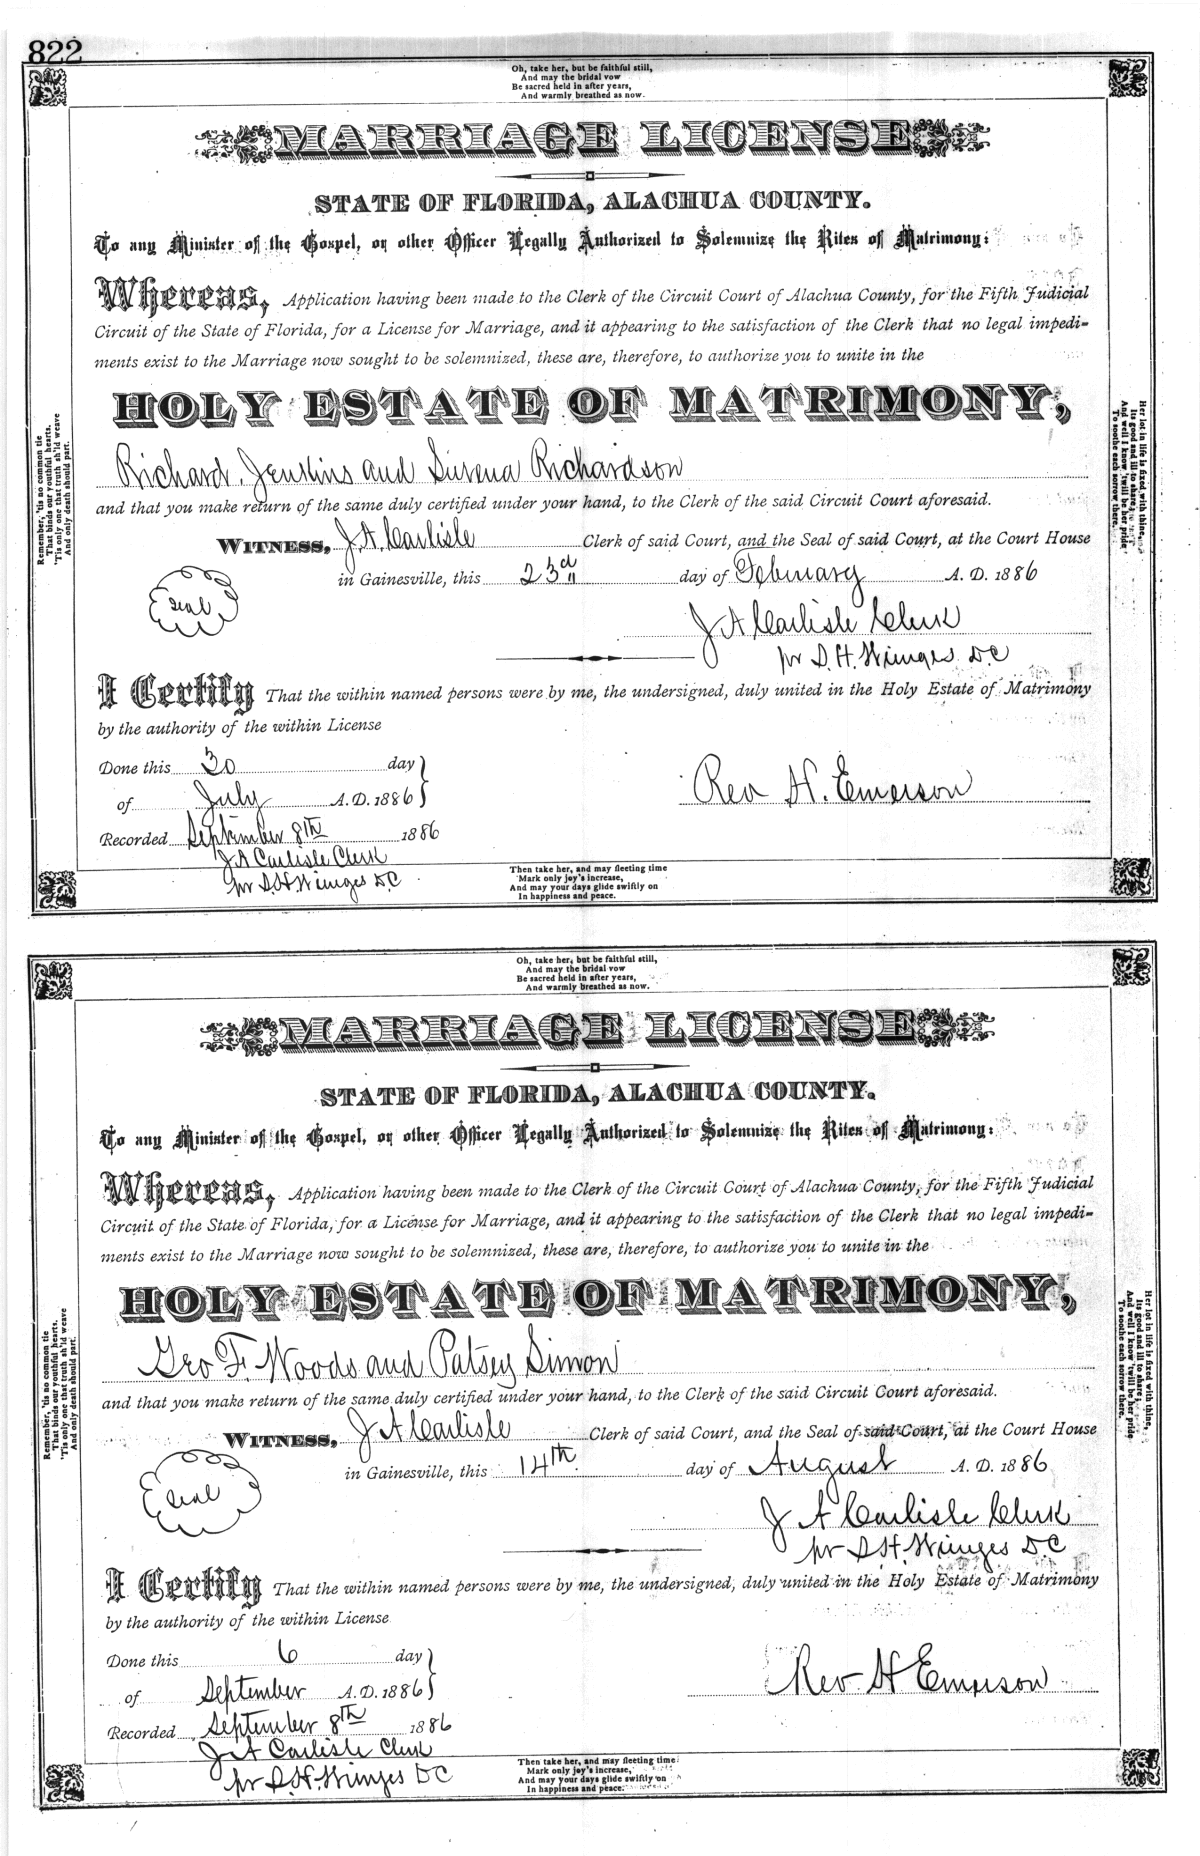 822
Oh, take her, but be faithful still,
And may the bridal vow
Be sacred held in after years,
And warmly breathed as now.
MARRIAGE LICENSE
STATE OF FLORIDA, ALACHUA COUNTY.
To any Minister of the Gospel, or other Officer Legally Authorized to Solemnize the Rites of Matrimony:
Whereas, Application having been made to the Clerk of the Circuit Court of Alachua County, for the Fifth Judicial
Circuit of the State of Florida, for a License for Marriage, and it appearing to the satisfaction of the Clerk that no legal impedi-
ments exist to the Marriage now sought to be solemnized, these are, therefore, to authorize you to unite in the
HOLY ESTATE OF MATRIMONY,
Richard Jenkins and Surena Richardson
and that you make return of the same duly certified under your hand, to the Clerk of the said Circuit Court aforesaid.
WITNESS, J. A. Carlisle Clerk of said Court, and the Seal of said Court, at the Court House
in Gainesville, this 23d day of February A. D. 1886
Seal
J A Carlisle Clerk
pr S. H. Wienges D.C
I Certify That the within named persons were by me, the undersigned, duly united in the Holy Estate of Matrimony
by the authority of the within License
Done this 30 day
of July A. D. 1886
Rev H. Emerson
Recorded September 8th 1886
J A Carlisle Clerk
pr S H Wienges D.C
Then take her, and may fleeting time
Mark only joy's increase,
And may your days glide swiftly on
In happiness and peace.
Remember, 'tis no common tie
That binds our youthful hearts,
'Tis only one that truth sh'ld weave
And only death should part.
Her lot in life is fixed with thine,
Its good and ill to share,
And well I know 'twill be her pride
To soothe each sorrow there.
Oh, take her, but be faithful still,
And may the bridal vow
Be sacred held in after years,
And warmly breathed as now.
MARRIAGE LICENSE
STATE OF FLORIDA, ALACHUA COUNTY.
To any Minister of the Gospel, or other Officer Legally Authorized to Solemnize the Rites of Matrimony:
Whereas, Application having been made to the Clerk of the Circuit Court of Alachua County, for the Fifth Judicial
Circuit of the State of Florida, for a License for Marriage, and it appearing to the satisfaction of the Clerk that no legal impedi-
ments exist to the Marriage now sought to be solemnized, these are, therefore, to authorize you to unite in the
HOLY ESTATE OF MATRIMONY,
Geo F. Woods and Patsey Simon
and that you make return of the same duly certified under your hand, to the Clerk of the said Circuit Court aforesaid.
WITNESS, J A Carlisle Clerk of said Court, and the Seal of said Court, at the Court House
in Gainesville, this 14th day of August A. D. 1886
Seal
J A Carlisle Clerk
pr S. H. Wienges D C
I Certify That the within named persons were by me, the undersigned, duly united in the Holy Estate of Matrimony
by the authority of the within License
Done this 6 day
of September A. D. 1886
Rev H Emerson
Recorded September 8th 1886
J A Carlisle Clerk
pr S. H. Wienges D C
Then take her, and may fleeting time
Mark only joy's increase,
And may your days glide swiftly on
In happiness and peace.
Remember, 'tis no common tie
That binds our youthful hearts,
'Tis only one that truth sh'ld weave
And only death should part.
Her lot in life is fixed with thine,
Its good and ill to share;
And well I know 'twill be her pride
To soothe each sorrow there.